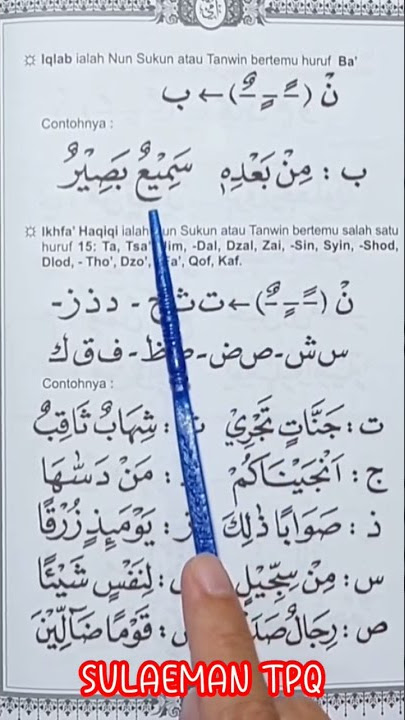 Iqlab ialah Nun Sukun atau Tanwin bertemu huruf Ba'
نْ (ــًـ ــٍـ ــٌـ) ← ب
Contohnya :
ب : مِنْ بَعْدِهٖ سَمِيْعٌ بَصِيْرٌ
Ikhfa' Haqiqi ialah Nun Sukun atau Tanwin bertemu salah satu
huruf 15: Ta, Tsa' Jim, -Dal, Dzal, Zai, -Sin, Syin, -Shod,
Dlod, - Tho', Dzo', Fa', Qof, Kaf.
نْ (ــًـ ــٍـ ــٌـ) ← ت ث ج - د ذ ز -
س ش - ص ض - ط ظ - ف ق ك
Contohnya :
ت : جَنَّاتٍ تَجْرِيْ ث : شِهَابٌ ثَاقِبٌ
ج : اَنْجَيْنَاكُمْ : مَنْ دَسّٰهَا
ذ : صَوَابًا ذٰلِكَ ز : يَوْمَئِذٍ زُرْقًا
س : مِنْ سِجِّيْلٍ ش : لِنَفْسٍ شَيْئًا
ص : رِجَالٌ صَدَ ض : قَوْمًا ضَآلِّيْنَ
SULAEMAN TPQ